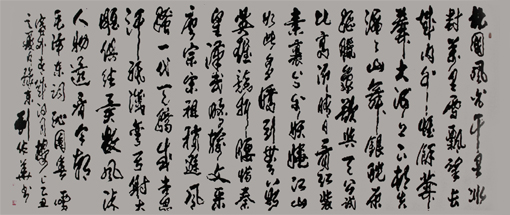 北国风光千里冰
封万里雪飘望长
城内外惟余莽
莽大河上下顿失
滔滔山舞银蛇原
驰蜡象欲与天公试
比高须晴日看红装
素裹分外妖娆江山
如此多娇引无数
英雄竞折腰惜秦
皇汉武略输文采
唐宗宋祖稍逊风
骚一代天骄成吉思
汗只识弯弓射大
雕俱往矣数风流
人物还看今朝
毛泽东词沁园春雪
己丑
之夏月